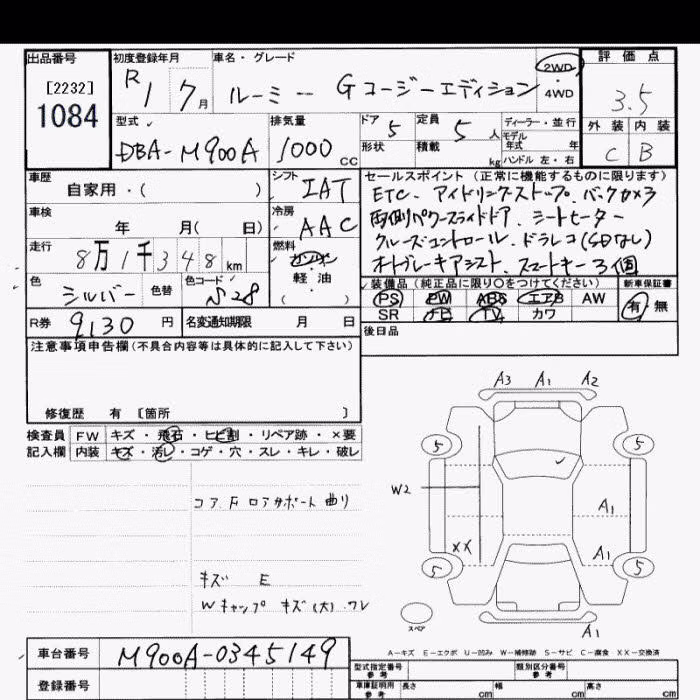 出品番号 初度登録年月 車名・グレード 評価点
[2232] R1 7月 ルーミー Gコージーエディション 2WD・4WD 3.5
1084
型式 排気量 ドア 5 定員 5人 ディーラー・並行 外装 内装
DBA-M900A 1000cc 形状 積載 kg モデル年式 年 C B
ハンドル 左・右
車歴 シフト セールスポイント(正常に機能するものに限ります)
自家用・( ) IAT ETC. アイドリングストップ. バックカメラ
車検 冷房 両側パワースライドドア. シートヒーター
年 月( 日) AAC クルーズコントロール. ドラレコ(SDなし)
走行 燃料 オートブレーキアシスト. スマートキー3個
8万1千348km ガソリン・軽油
色 色替 色コード 装備品(純正品に限り○をつけてください) 新車保証書
シルバー S28 PS PW ABS エアB AW 有・無
R券 9130円 名変通知期限 月 日 SR ナビ TV カワ
注意事項申告欄(不具合内容等は具体的に記入して下さい) 後日品
修復歴 有 〔箇所 〕
検査員 FW キズ・飛石・ヒビ割・リペア跡・×要
記入欄 内装 キズ・汚レ・コゲ・穴・スレ・キレ・破レ
コア F ロアサポート 曲り
キズ E
Wキャップ キズ(大) ワレ
A3 A1 A2
5 5
W2
A1
XX A1
5 5
スペア
A1
A-キズ E-エクボ U-凹み W-補修跡 S-サビ C-腐食 XX-交換済
車台番号 M900A-0345149
型式指定番号 参考 類別区分番号 参考
登録番号 車庫証明用 参考 長さ cm 幅 cm 高さ cm